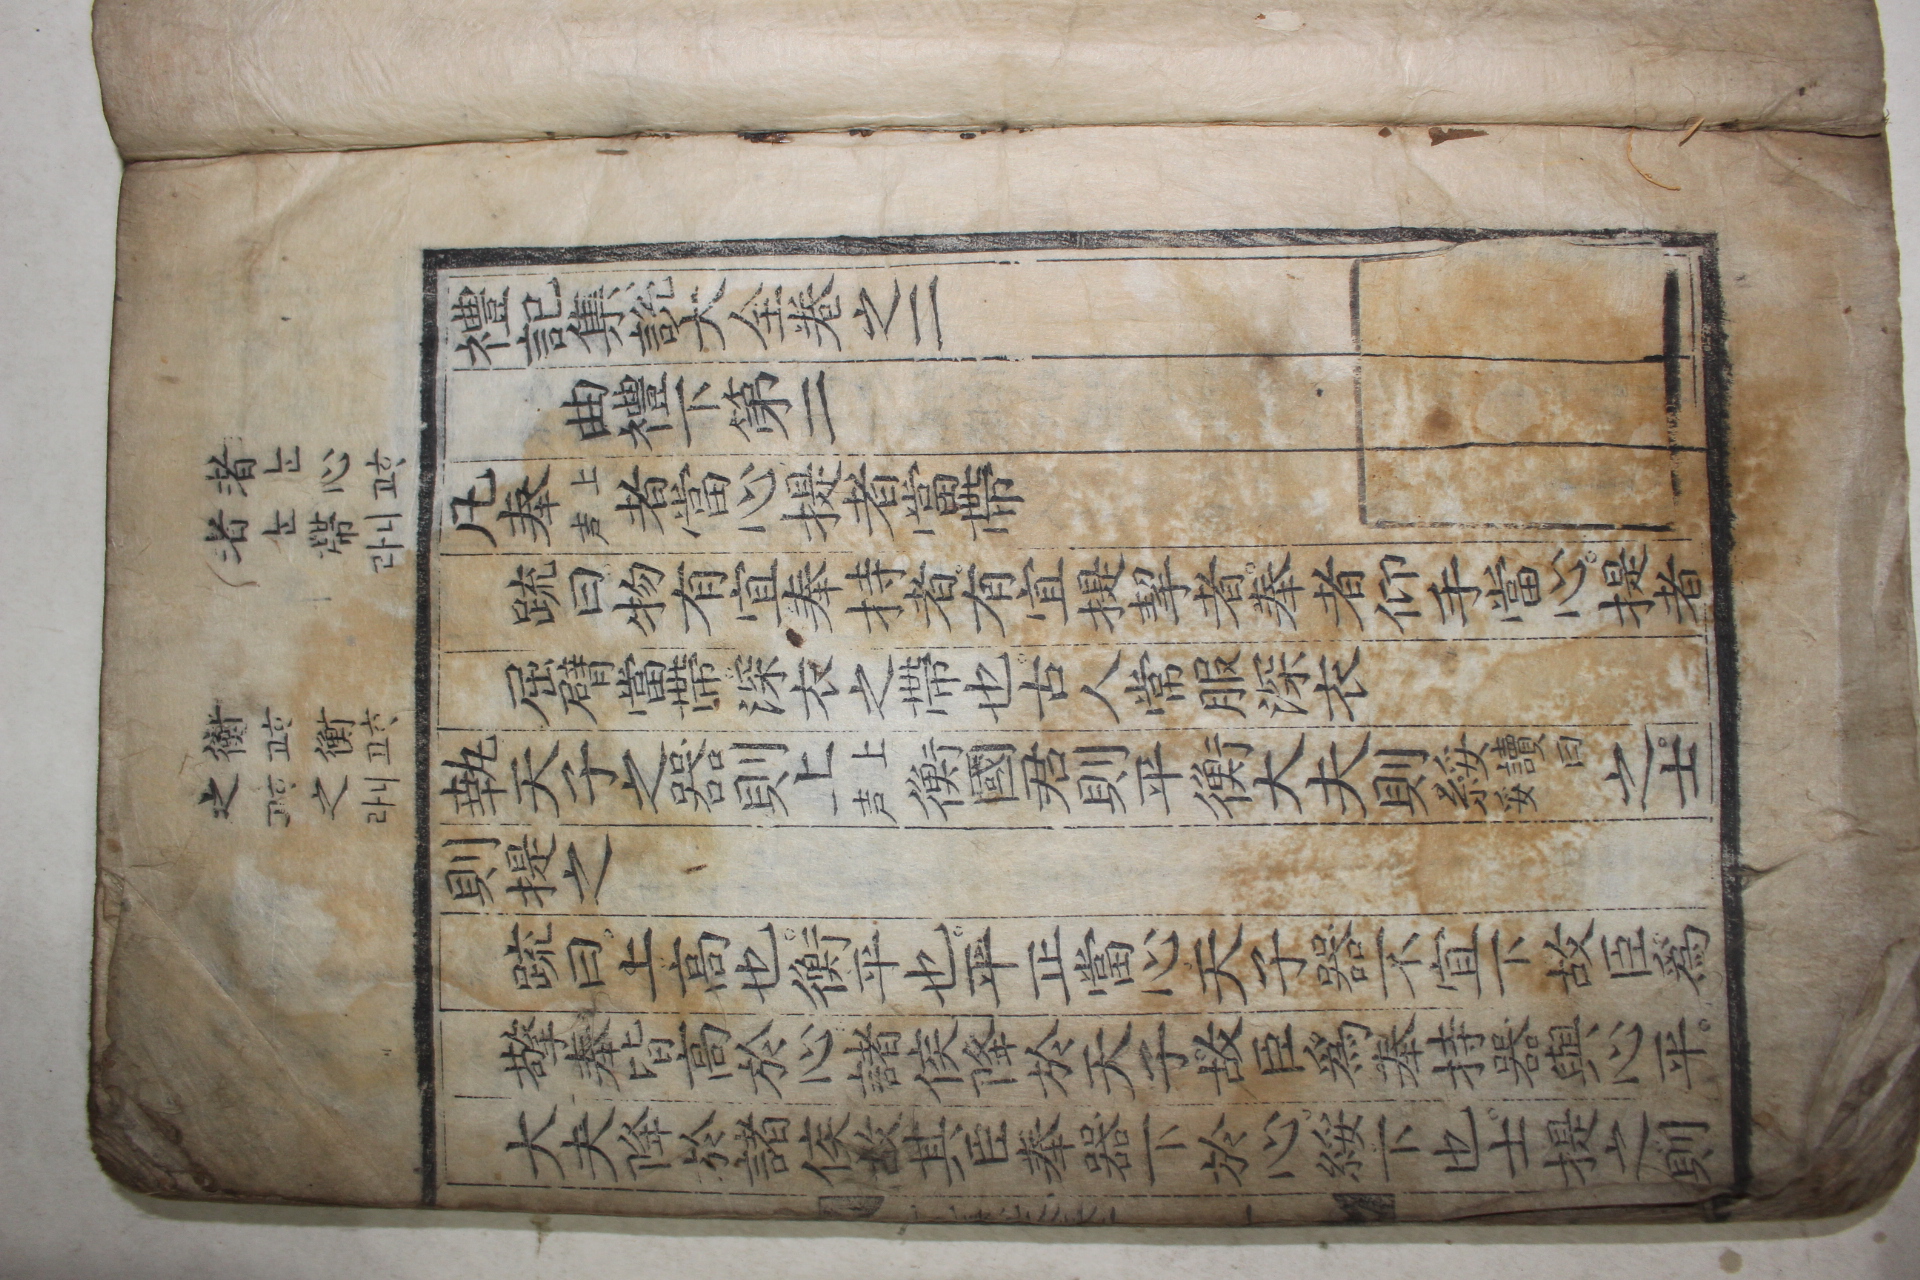 者ᄂᆞᆫ心ᄒᆞ고
者ᄂᆞᆫ帶니라
衡ᄒᆞ고衡ᄒᆞ고
之ᄒᆞ고之니라
禮記集說大全卷之二
曲禮下第二
凡奉上声者當心提者當帶
疏曰物有宜奉持者有宜提挈者奉者仰手當心提者
屈臂當帶深衣之帶也古人常服深衣
執天子之器則上上声衡國君則平衡大夫則綏讀曰妥之士
則提之
疏曰上高也衡平也平正當心天子器不宜下故臣爲
擎奉皆高於心諸侯降於天子故臣爲奉持器與心平
大夫降於諸侯故其臣奉器下於心綏下也士提之則